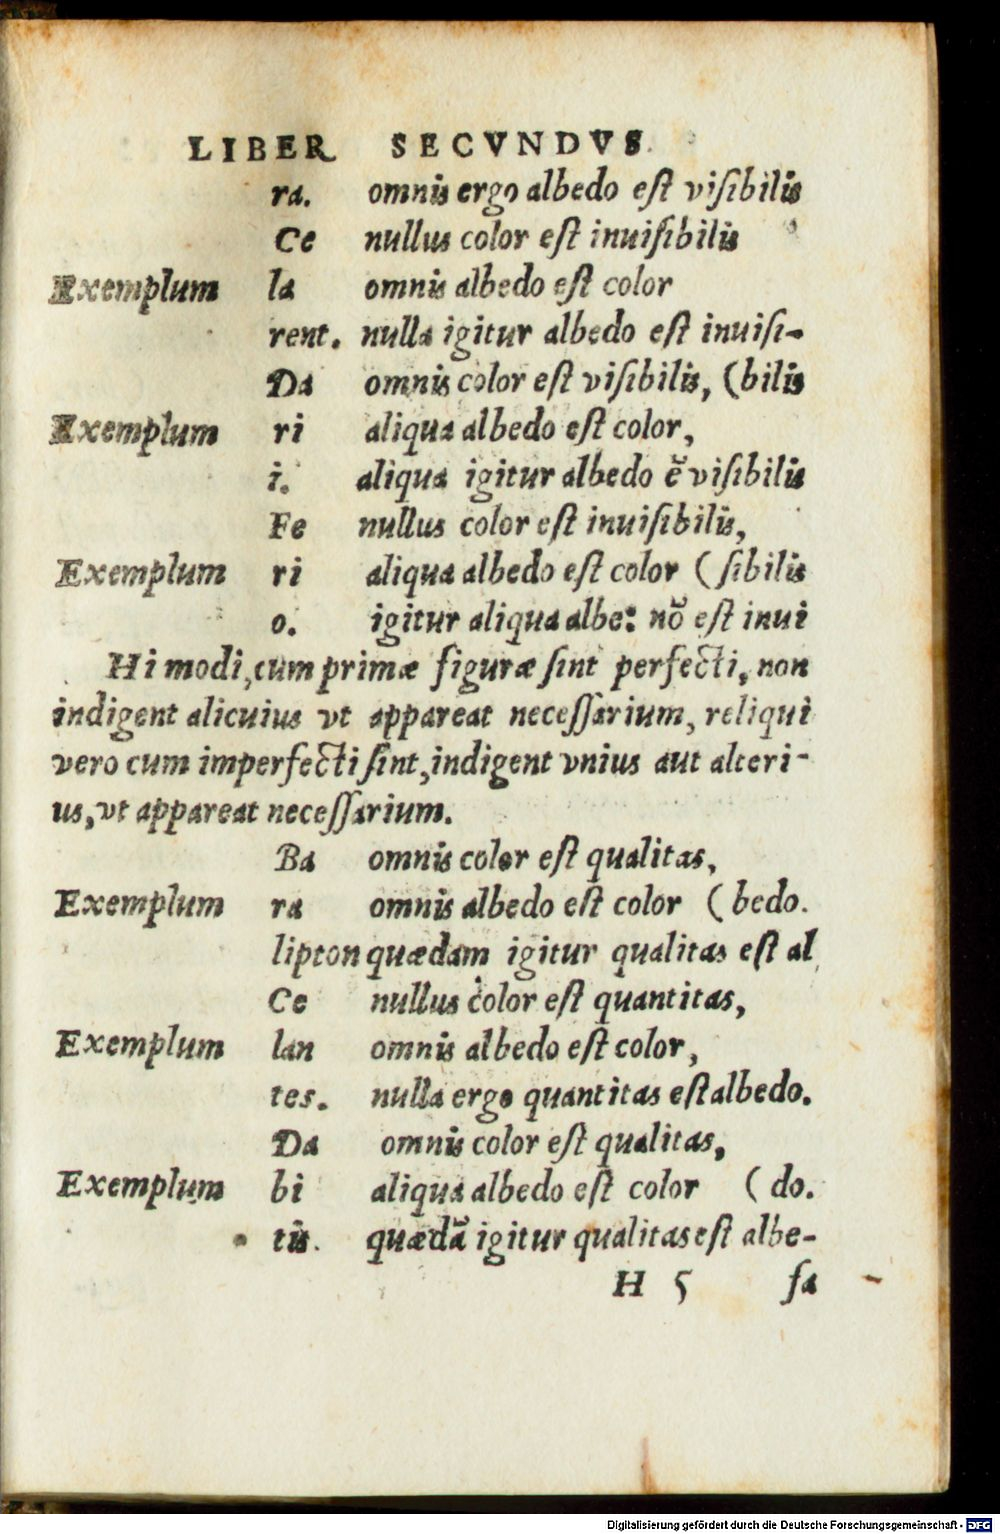 LIBER SECVNDVS.
ra. omnis ergo albedo est visibilis
Ce nullus color est inuisibilis
Exemplum la omnis albedo est color
rent. nulla igitur albedo est inuisi-
Da omnis color est visibilis, (bilis
Exemplum ri aliqua albedo est color,
i. aliqua igitur albedo ē visibilis
Fe nullus color est inuisibilis,
Exemplum ri aliqua albedo est color (sibilis
o. igitur aliqua albe: nō est inui
Hi modi, cum primæ figuræ sint perfecti, non
indigent alicuius vt appareat necessarium, reliqui
vero cum imperfecti sint, indigent vnius aut alteri-
us, vt appareat necessarium.
Ba omnis color est qualitas,
Exemplum ra omnis albedo est color (bedo.
lipton quædam igitur qualitas est al
Ce nullus color est quantitas,
Exemplum lan omnis albedo est color,
tes. nulla ergo quantitas est albedo.
Da omnis color est qualitas,
Exemplum bi aliqua albedo est color (do.
tis. quædā igitur qualitas est albe-
H 5 sa
Digitalisierung gefördert durch die Deutsche Forschungsgemeinschaft - DFG